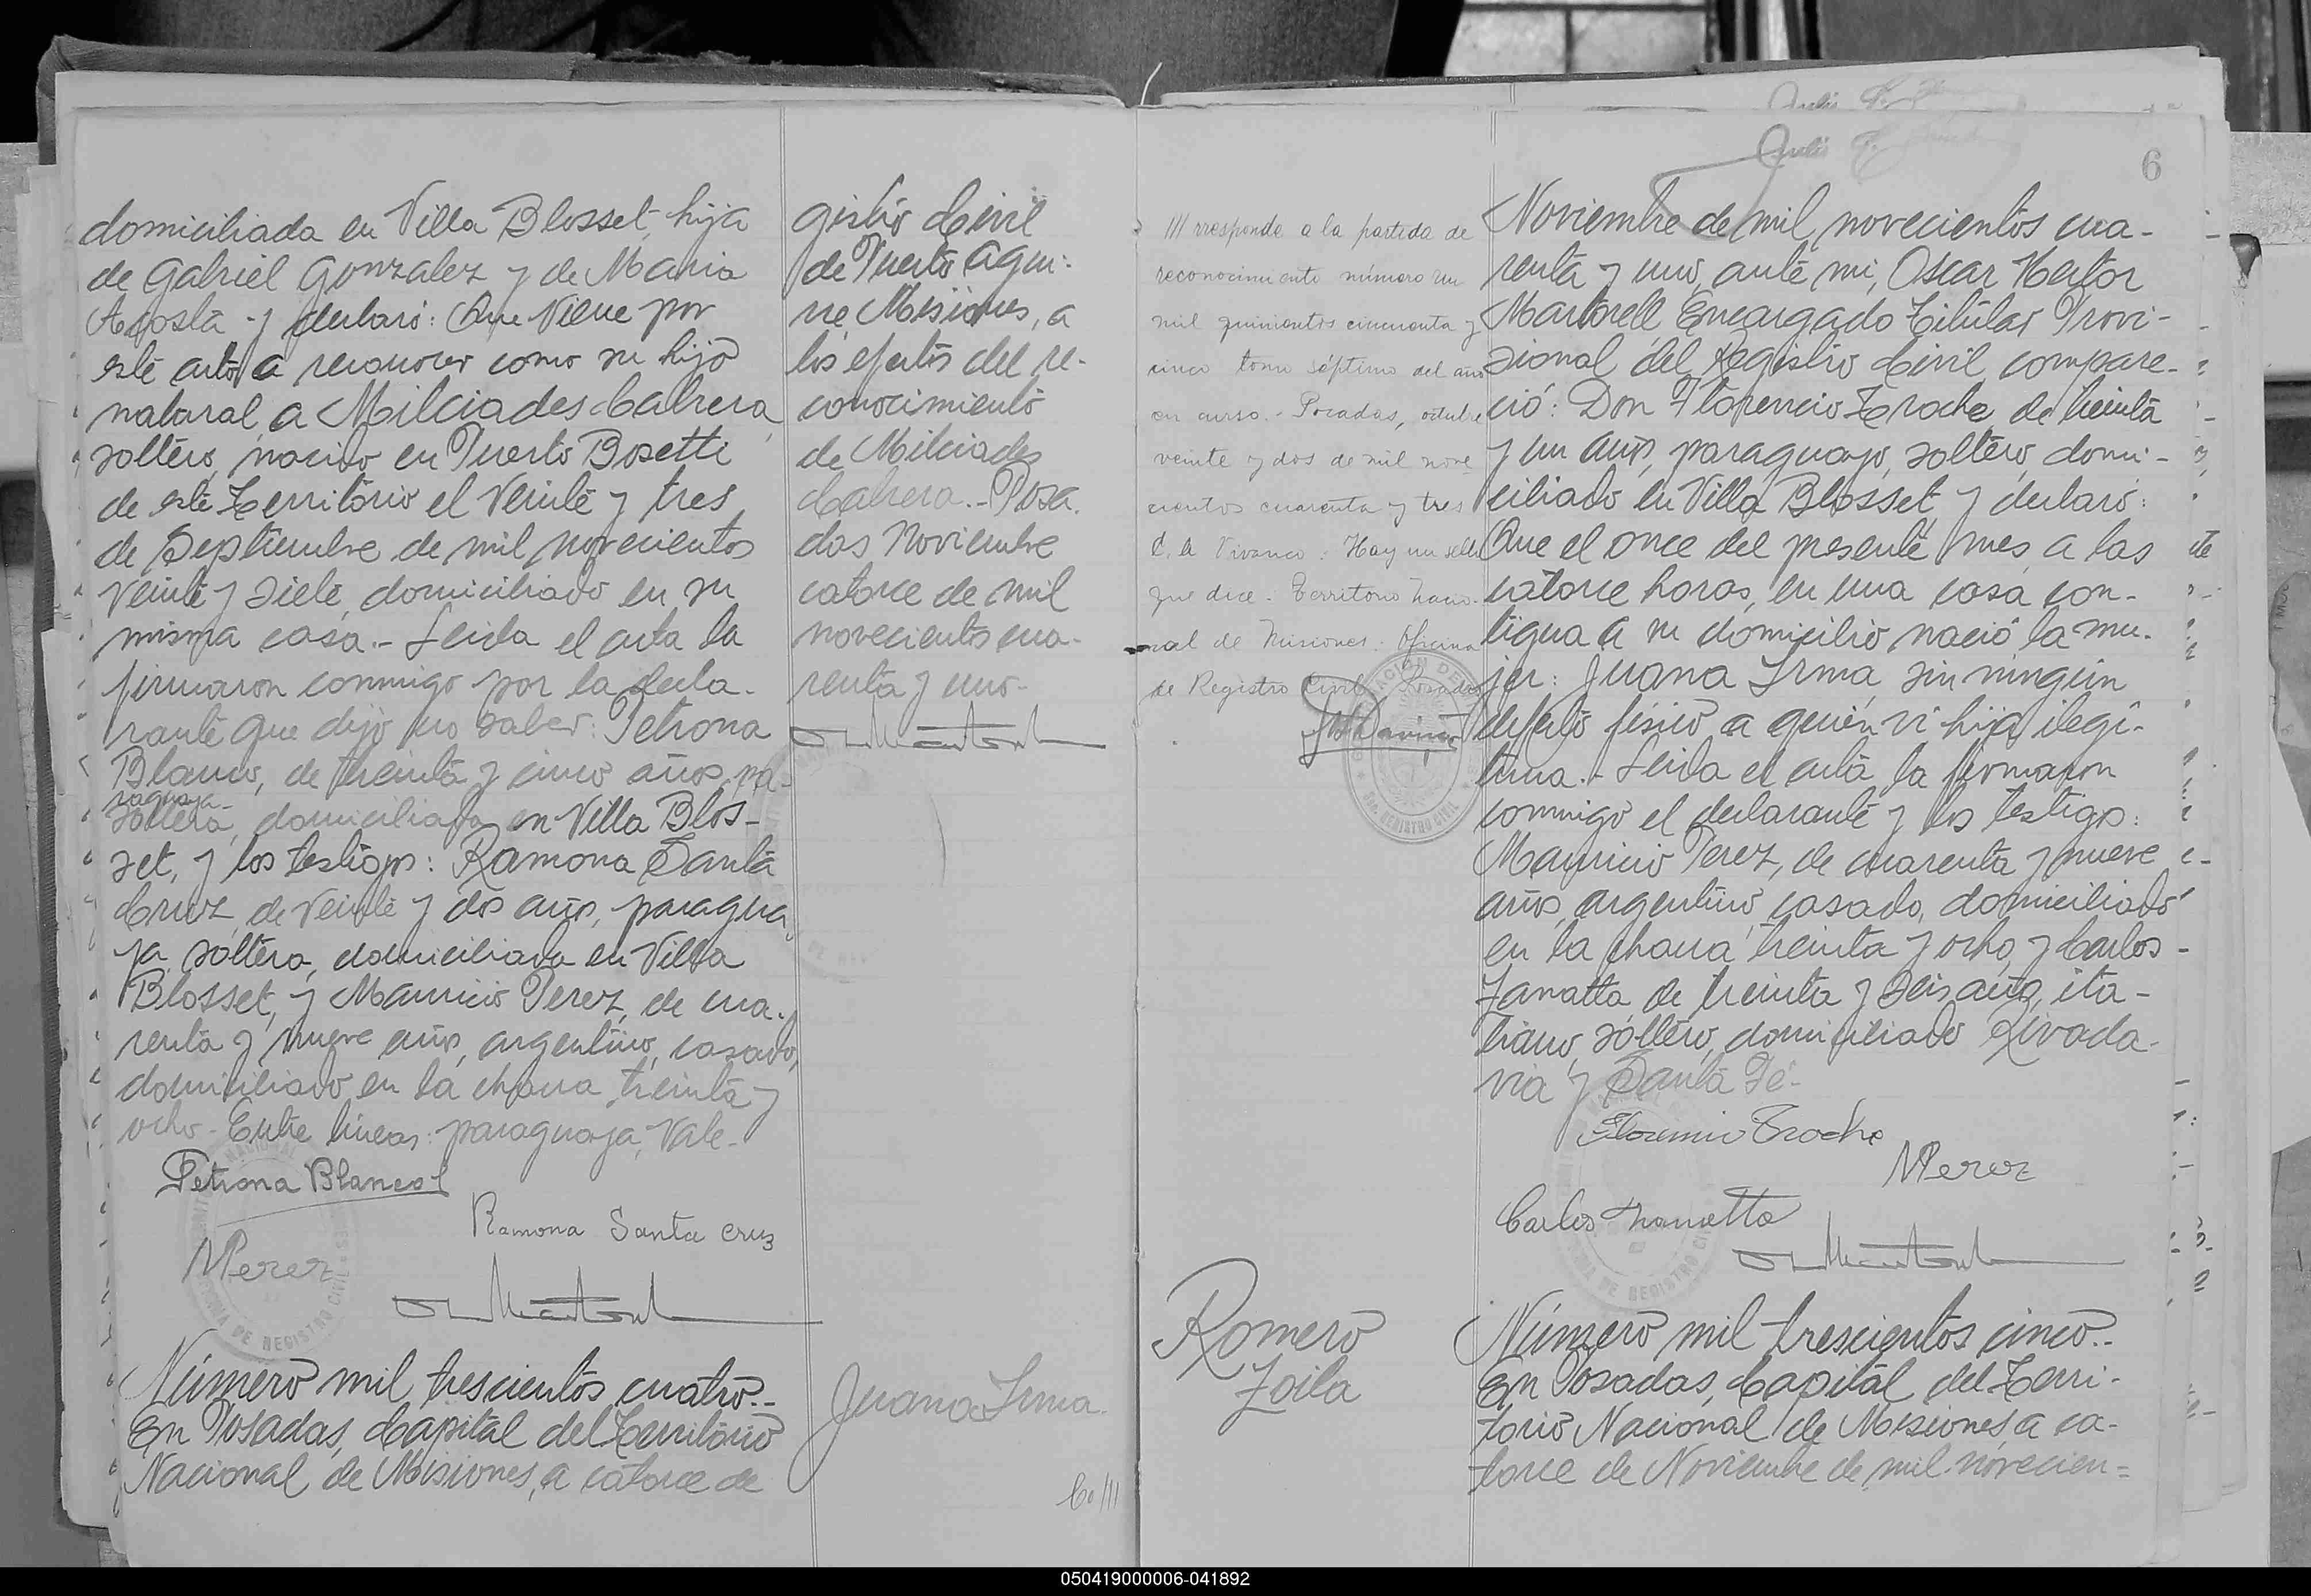 domiciliada en Villa Blosset, hija
de Gabriel Gonzalez y de Maria
Acosta y declaró: Que viene por
este acto a reconocer como su hijo
natural a Milciades Cabrera,
soltero, nacido en Puerto Bosetti
de este Territorio el veinte y tres
de Septiembre de mil novecientos
veinte y siete, domiciliado en su
misma casa.- Leida el acta la
firmaron conmigo por la decla-
rante que dijo no saber: Petrona
Blanco, de treinta y cinco años, pa-
raguaya-
soltera, domiciliada en Villa Blos-
set, y los testigos: Ramona Santa
Cruz, de veinte y dos años, paragua
ya, soltera, domiciliada en Villa
Blosset, y Mauricio Perez, de cua-
renta y nueve años, argentino, casado,
domiciliado en la chacra treinta y
ocho- Entre lineas: paraguaya, Vale-
Petrona Blanco
Ramona Santa Cruz
MPerez
Número mil trescientos cuatro.-
En Posadas, Capital del Territorio
Nacional de Misiones, a catorce de
gistro Civil
de Puerto Agui-
rre Misiones, a
los efectos del re-
conocimiento
de Milciades
Cabrera.- Posa.
das Noviembre
catorce de mil
novecientos cua-
renta y uno-
Juana Irma.
Co///
/// rresponde a la partida de
reconocimiento número un
mil quinientos cincuenta y
cinco tomo séptimo del año
en curso.- Posadas, octubre
veinte y dos de mil nove
cientos cuarenta y tres
Hay un sello
que dice. Territorio Nacio-
nal de Misiones. Oficina
de Registro Civil. Posadas
6
Noviembre de mil novecientos cua-
renta y uno, ante mi, Oscar Hector
Martorell Encargado Titular Provi-
sional del Registro Civil compare-
ció: Don Florencio Troche de treinta
y un años, paraguayo, soltero, domi-
ciliado en Villa Blosset, y declaró:
Que el once del presente mes, a las
catorce horas, en una casa con-
tigua a su domicilio nació la mu-
jer: Juana Irma, sin ningún
defecto fisico a quien vi hija ilegi-
tima.- Leida el acta la firmaron
conmigo el declarante y los testigos:
Mauricio Perez, de cuarenta y nueve
años, argentino, casado, domiciliado
en la chacra treinta y ocho, y Carlos
Zanatta de treinta y seis años, ita-
liano, soltero, domiciliado Rivada-
via y Santa Fé-
Florencio Troche
MPerez
Carlos Zanatta
Romero
Zoila
Número mil trescientos cinco.-
En Posadas, Capital del Terri-
torio Nacional de Misiones, a ca-
torce de Noviembre de mil novecien=
050419000006-041892